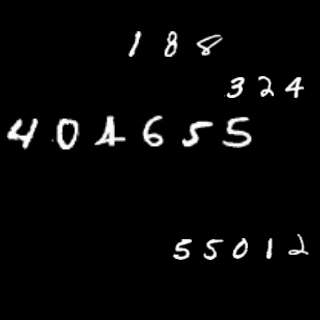 188
324
404655
55012